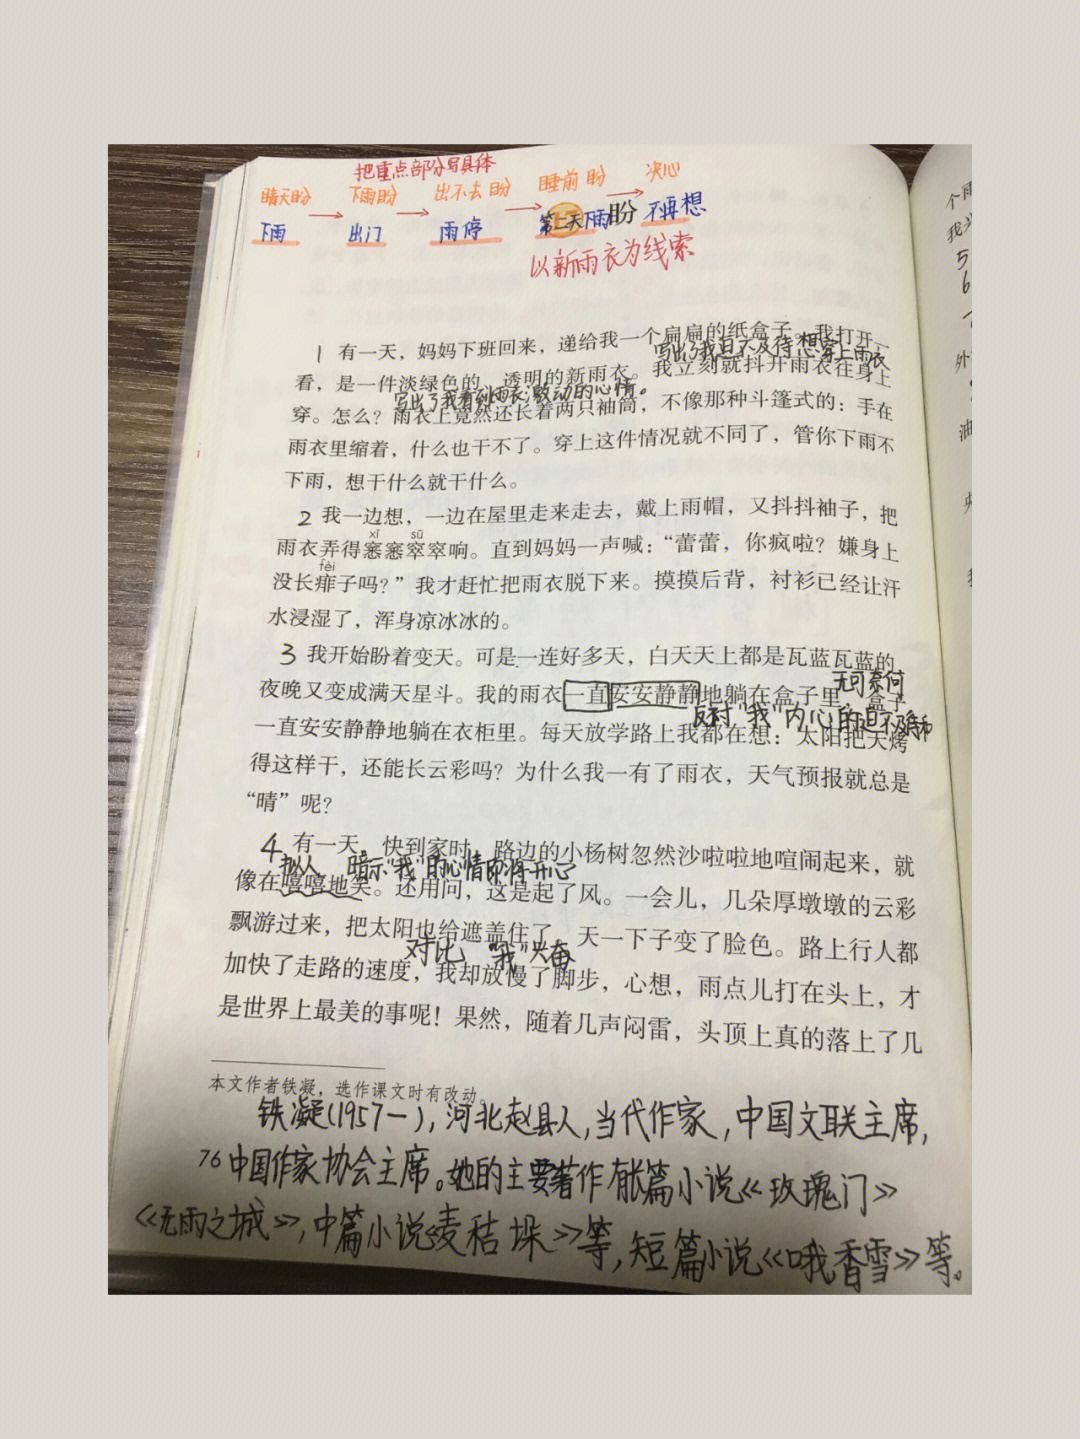 把重点部分写具体
晴天盼 → 下雨盼 → 出不去盼 → 睡前盼 → 决心
下雨 出门 雨停 第二天下雨盼 不再想
以新雨衣为线索
1 有一天，妈妈下班回来，递给我一个扁扁的纸盒子。我打开一
写出了我迫不及待想穿上雨衣
看，是一件淡绿色的、透明的新雨衣。我立刻就抖开雨衣往身上
写出了我看到雨衣激动的心情。
穿。怎么？雨衣上竟然还长着两只袖筒，不像那种斗篷式的：手在
雨衣里缩着，什么也干不了。穿上这件情况就不同了，管你下雨不
下雨，想干什么就干什么。
2 我一边想，一边在屋里走来走去，戴上雨帽，又抖抖袖子，把
xī sū
雨衣弄得窸窸窣窣响。直到妈妈一声喊：“蕾蕾，你疯啦？嫌身上
fèi
没长痱子吗？”我才赶忙把雨衣脱下来。摸摸后背，衬衫已经让汗
水浸湿了，浑身凉冰冰的。
3 我开始盼着变天。可是一连好多天，白天天上都是瓦蓝瓦蓝的，
无可奈何
夜晚又变成满天星斗。我的雨衣一直安安静静地躺在盒子里，盒子
反衬“我”内心的迫不及待和
一直安安静静地躺在衣柜里。每天放学路上我都在想：太阳把天烤
得这样干，还能长云彩吗？为什么我一有了雨衣，天气预报就总是
“晴”呢？
4 有一天，快到家时，路边的小杨树忽然沙啦啦地喧闹起来，就
拟人 暗示“我”的心情即将开心
像在嘻嘻地笑。还用问，这是起了风。一会儿，几朵厚墩墩的云彩
飘游过来，把太阳也给遮盖住了，天一下子变了脸色。路上行人都
对比，“我”兴奋
加快了走路的速度，我却放慢了脚步，心想，雨点儿打在头上，才
是世界上最美的事呢！果然，随着几声闷雷，头顶上真的落上了几
本文作者铁凝，选作课文时有改动。
铁凝(1957—)，河北赵县人，当代作家，中国文联主席，
76 中国作家协会主席。她的主要著作有长篇小说《玫瑰门》
《无雨之城》，中篇小说《麦秸垛》等，短篇小说《哦香雪》等。
个雨
我头
5
6
外
油